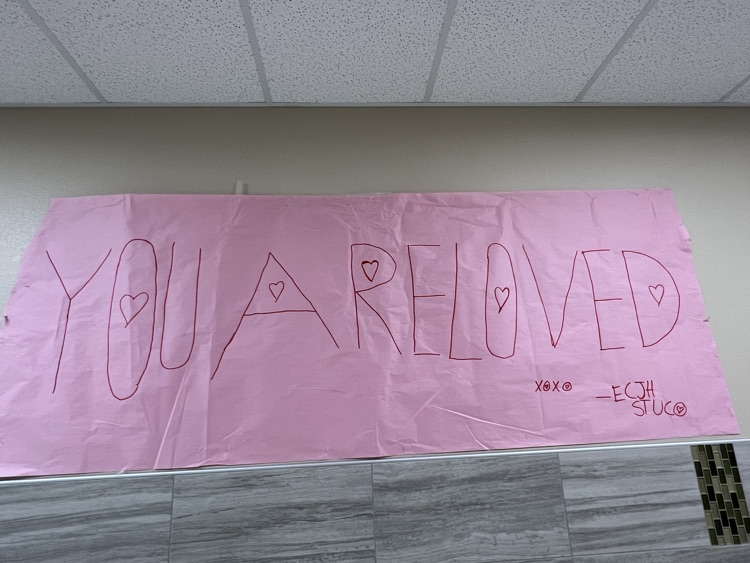 YOU ARE LOVED
XOXO
—ECJH
STUCO